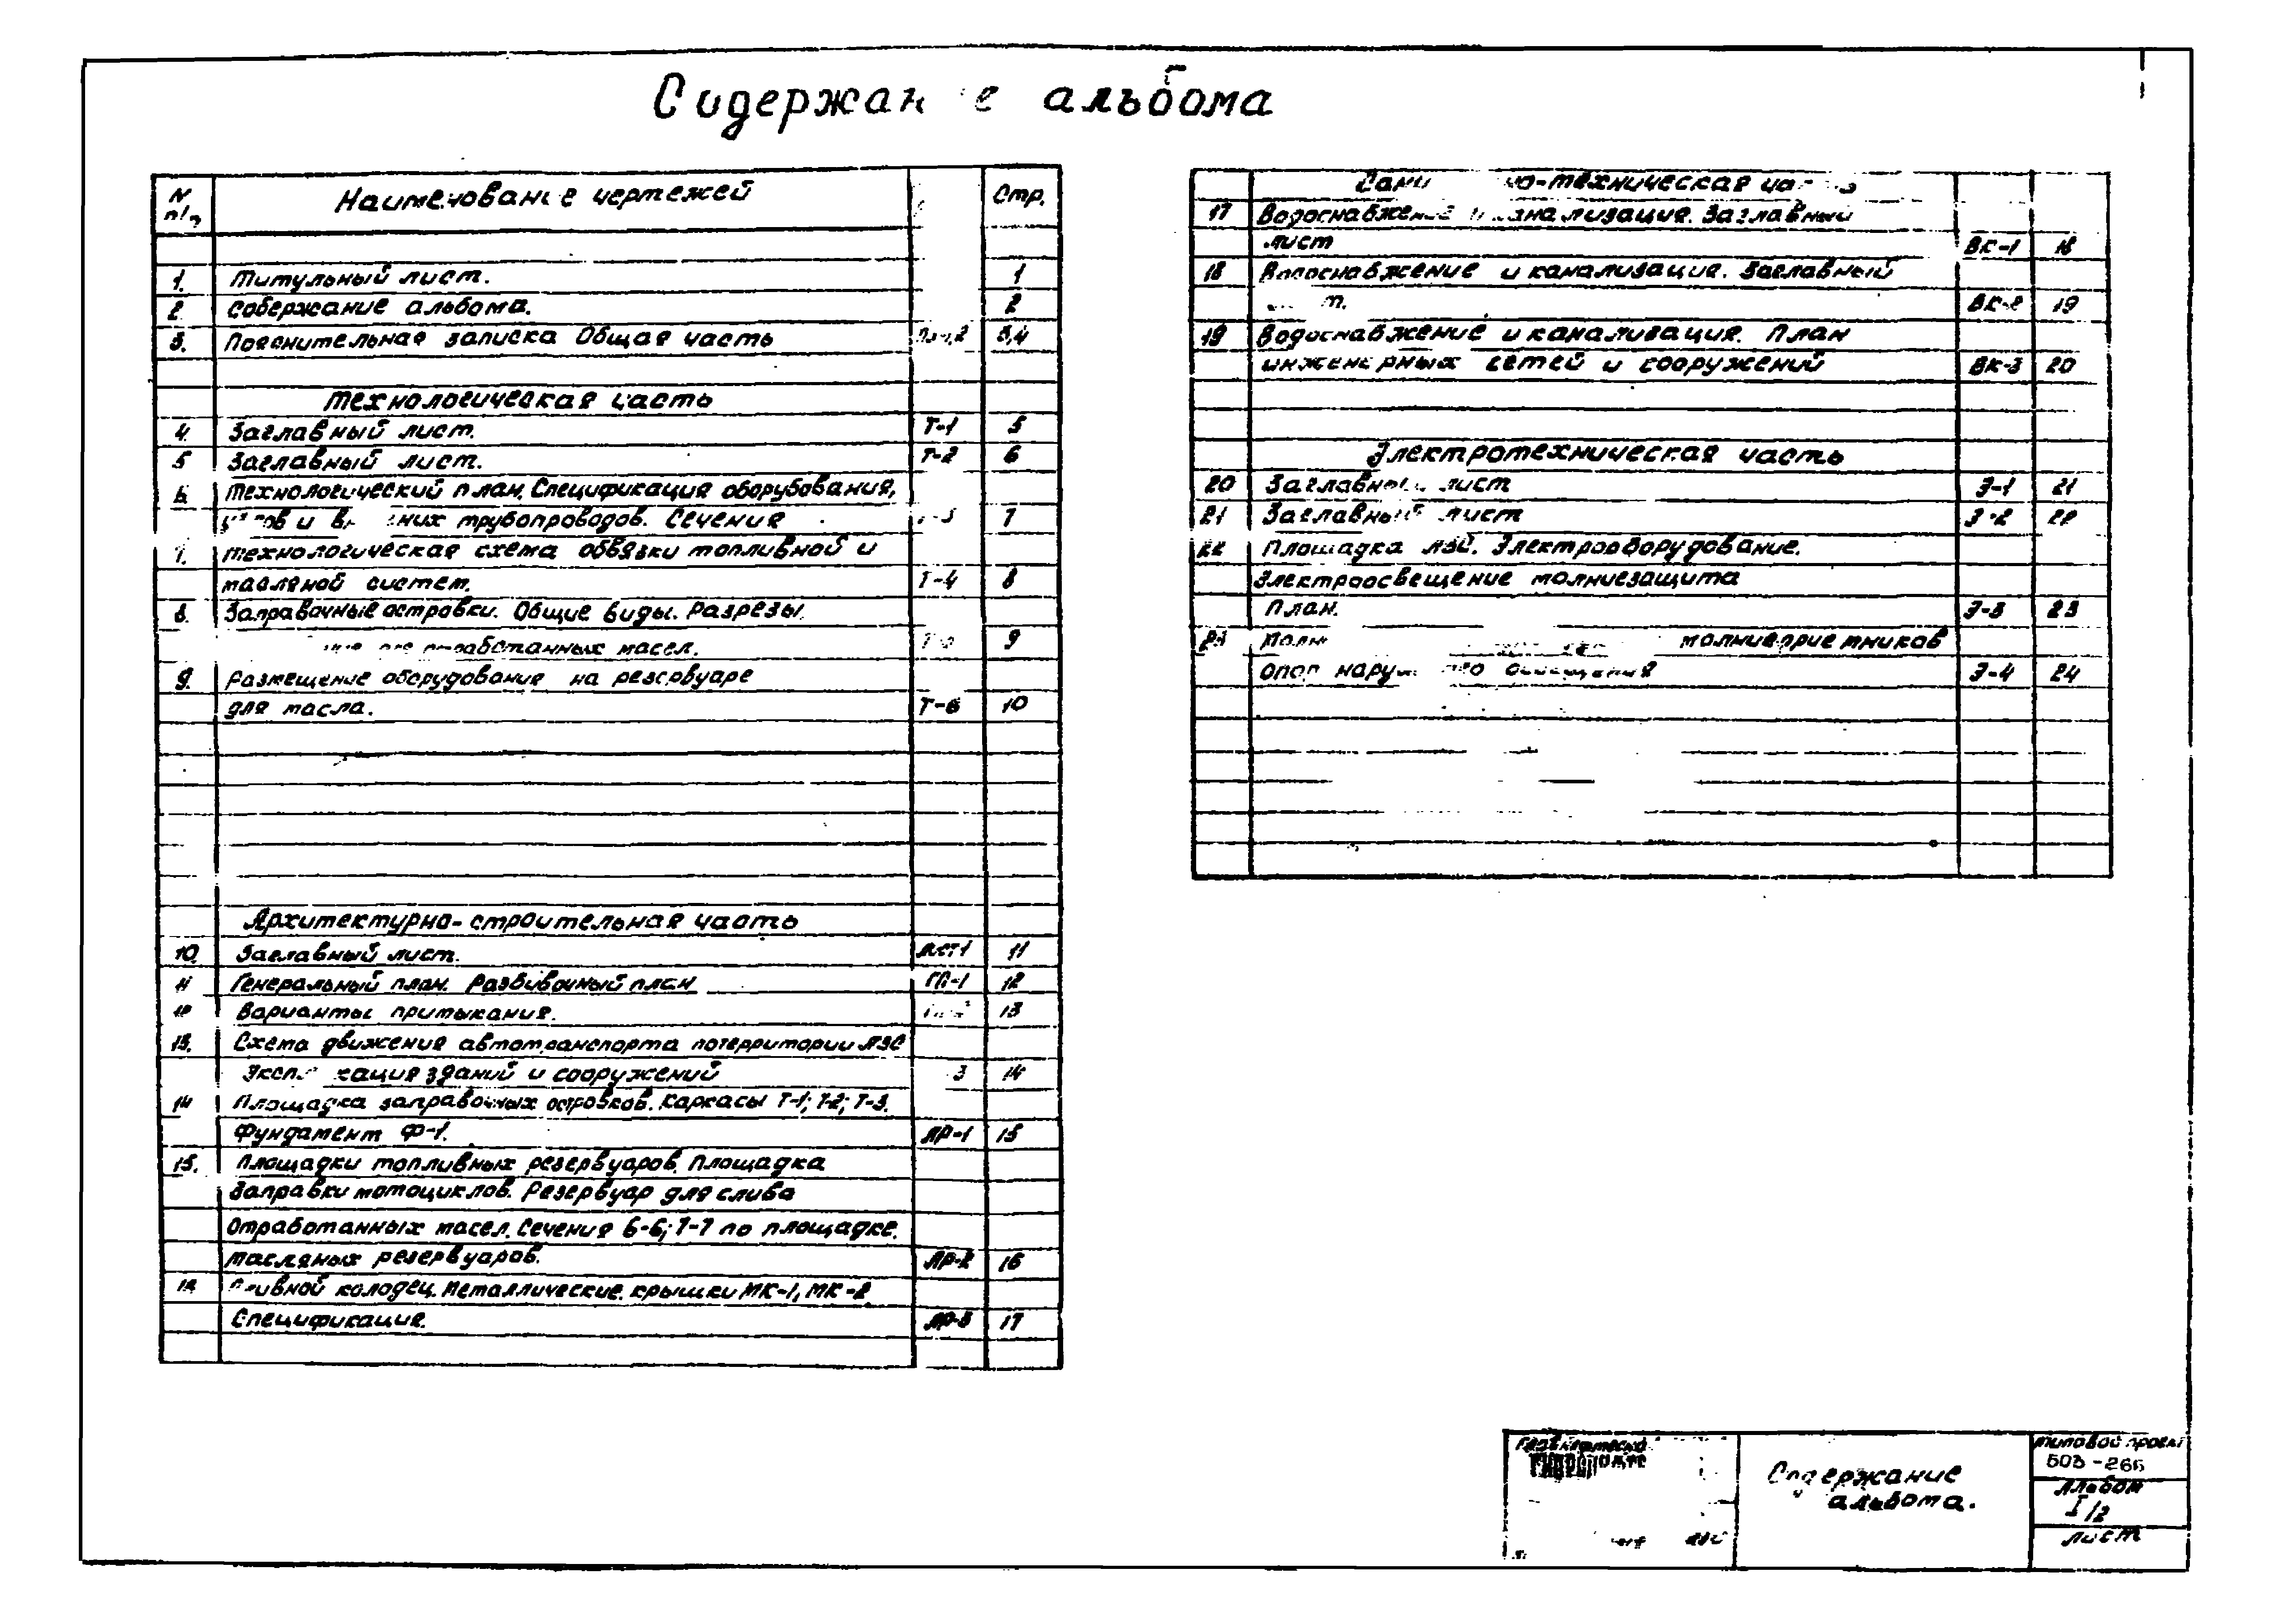 Содержание альбома
N п/п Наименование чертежей Стр.
1. Титульный лист. 1
2. Содержание альбома. 2
3. Пояснительная записка Общая часть 3,4
Технологическая часть
4. Заглавный лист. Т-1 5
5 Заглавный лист. Т-2 6
6. Технологический план. Спецификация оборудования,
и трубопроводов. Сечения 7
7. Технологическая схема обвязки топливной и
масляной систем. Т-4 8
8. Заправочные островки. Общие виды. Разрезы.
отработанных масел. 9
9. Размещение оборудования на резервуаре
для масла. Т-6 10
Архитектурно-строительная часть
10. Заглавный лист. 11
11 Генеральный план. Разбивочный план ГП-1 12
12 Варианты примыкания. 13
13. Схема движения автотранспорта по территории АЗС
зданий и сооружений 3 14
14 Площадка заправочных островков. Каркасы Т-1; Т-2; Т-3.
Фундамент Ф-1. АР-1 15
15. Площадки топливных резервуаров. Площадка
Заправки мотоциклов. Резервуар для слива
Отработанных масел. Сечения 6-6; 7-7 по площадке.
масляных резервуаров. АР-2 16
16 колодец. Металлические крышки МК-1, МК-2
Спецификация. АР-3 17
Санитарно-техническая часть
17 Водоснабжение и канализация. Заглавный
лист ВК-1 18
18 Водоснабжение и канализация. Заглавный
ВК-2 19
19 Водоснабжение и канализация. План
инженерных сетей и сооружений ВК-3 20
Электротехническая часть
20 Заглавный лист Э-1 21
21 Заглавный лист Э-2 22
22 Площадка АЗС. Электрооборудование.
Электроосвещение молниезащита
План. Э-3 23
23 молниеприемников
опор наружного освещения Э-4 24
Содержание
альбома.
Типовой проект
503-266
Альбом
I/2
Лист